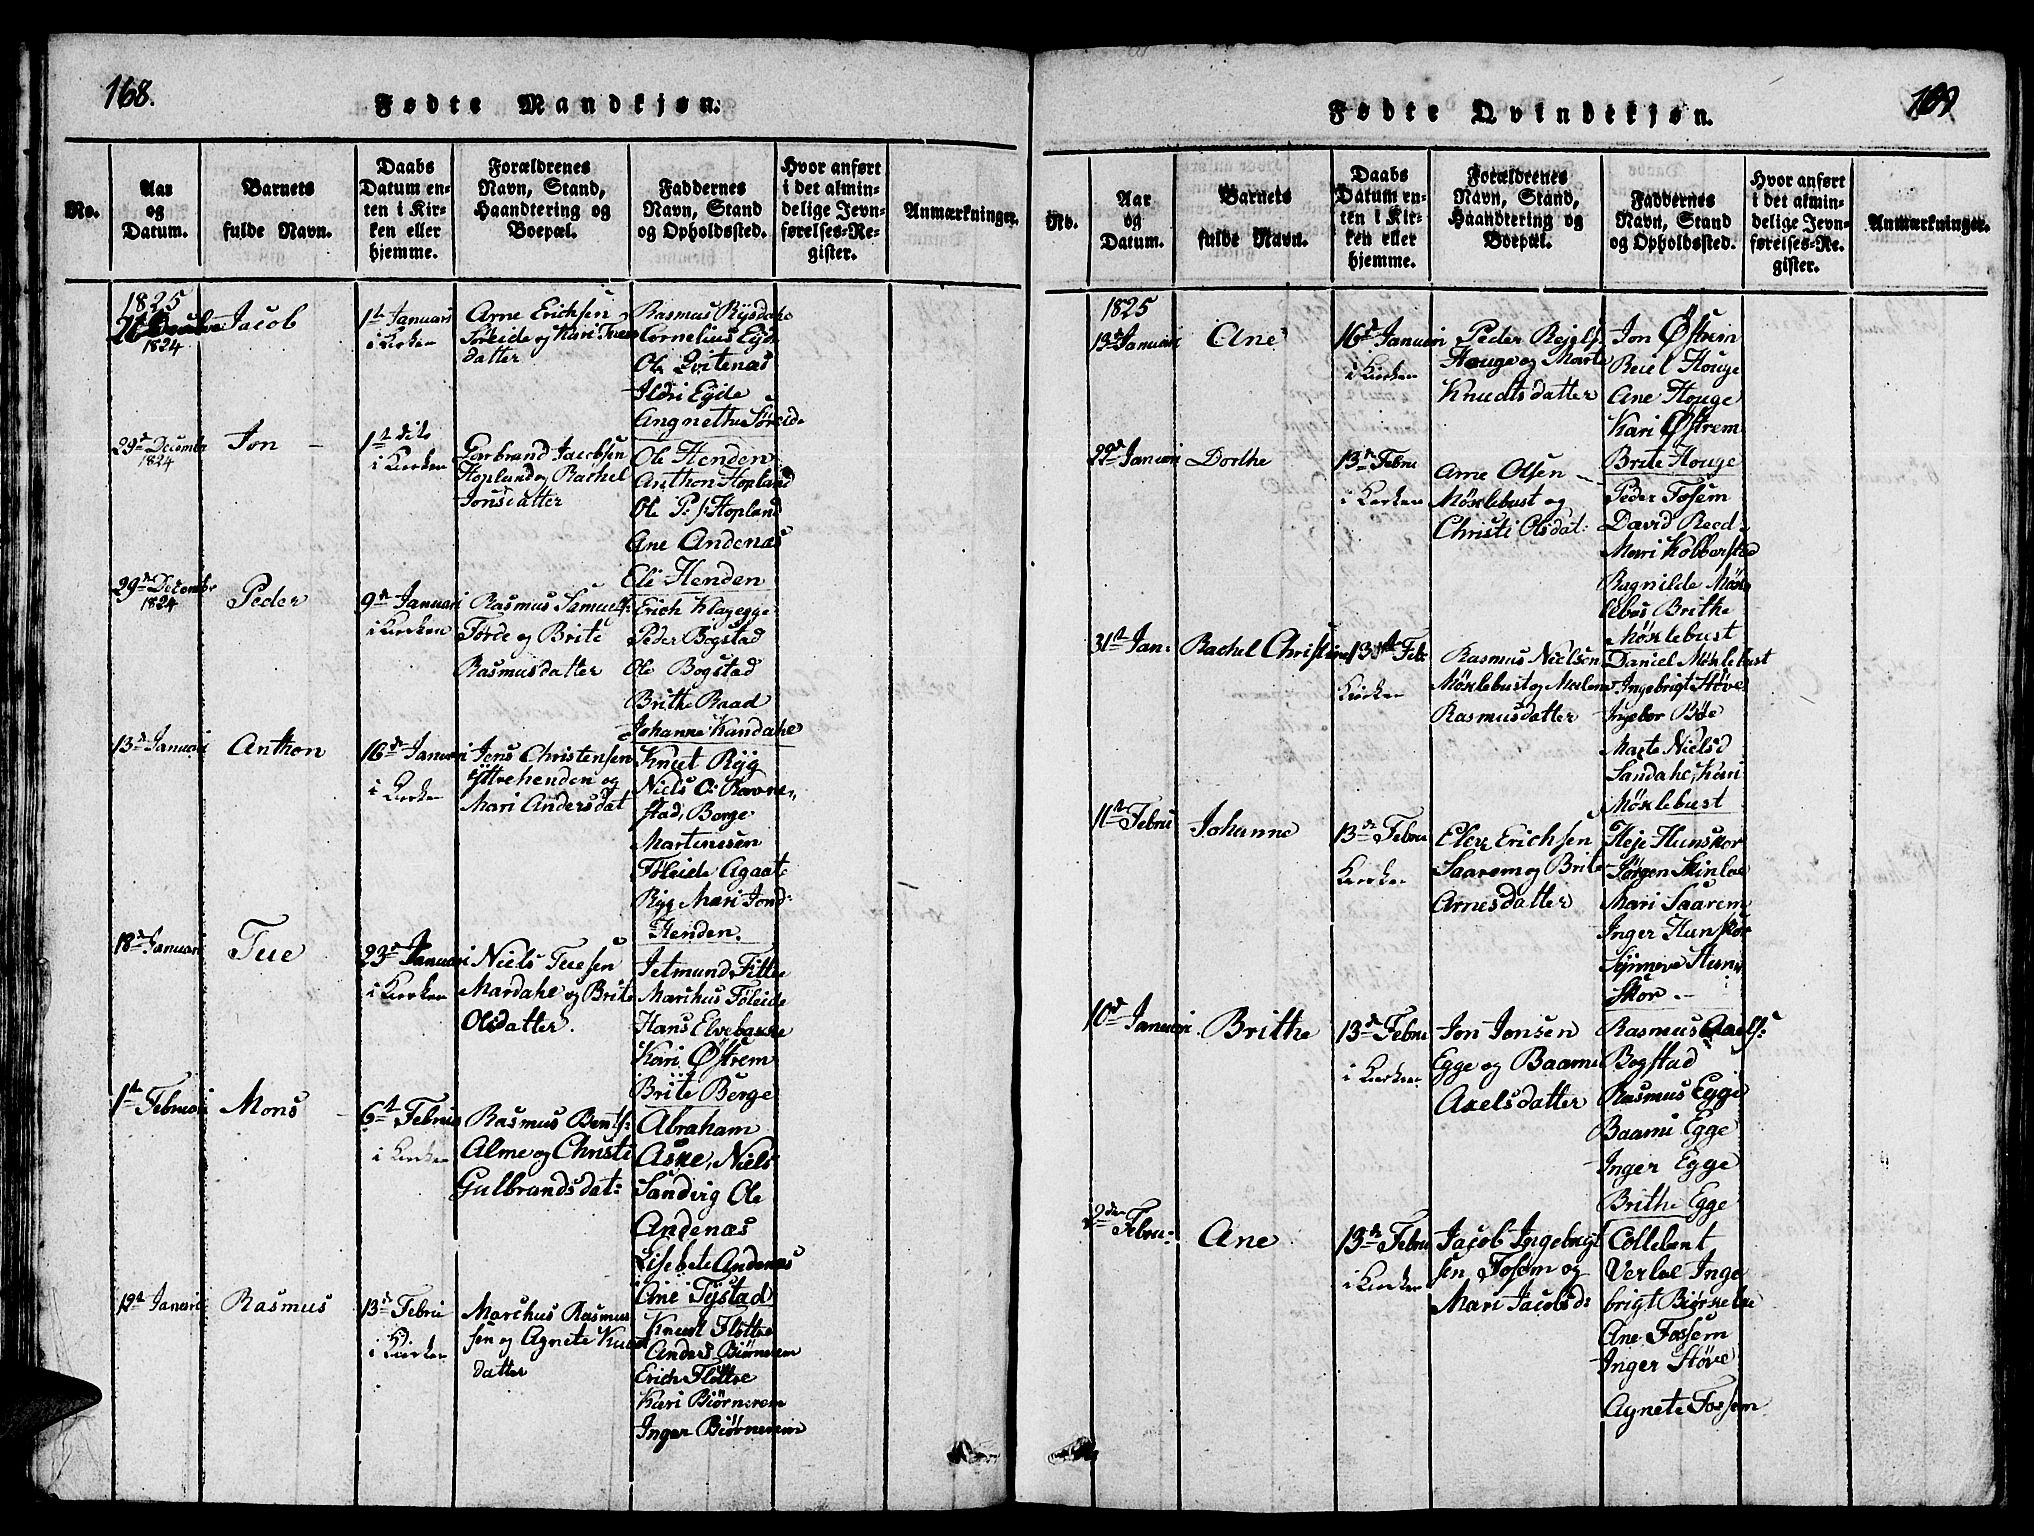 168.
Fødte Mandkjøn.
No.
Aar
og
Datum.
Barnets
fulde Navn.
Daabs
Datum en-
ten i Kir-
ken eller
hjemme.
Forældrenes
Navn, Stand,
Haandtering og
Boepæl.
Faddernes
Navn, Stand
og Opholdssted.
Hvor anført
i det almin-
delige Jevn-
førelses-Re-
gister.
Anmærkninger.
1825
1824
Jacob
1st Januari
i Kirken
Arne Erichsen
Søreide og Kari
datter
Rasmus Rysdahe
Cornelius Eyde
Ole Qvitenæs
Ildri Eyde
Angnethe Søreid
29de Decembr
1824
Jon
1st dito
i Kirken
Garbrand Jacobsen
Hopland og Rachel
Jonsdatter
Ole Henden
Anthon Hopland
Ole P:s: Hopland
Ane Andenæs
Eli Henden
29de Decembr
1824
Peder
9de Januari
i Kirken
Rasmus Samuels:
Førde og Brite
Rasmusdatter
Erich Klagegge
Peder Bogstad
Ole Bogstad
Brithe Raad
Johanne Kandahe
13de Januari
Anthon
16de Januari
i Kirken
Jens Christensen
Yttrehenden og
Mari Andersdat
Knut Ryg
Niels O: Ravne-
stad, Børge
Martinesen
Føleide Agaate
Ryg Mari Jond:
Henden.
18de Januari
Tue
23de Januari
i Kirken
Niels Tuesen
Mardahe og Brite
Olsdatter.
Jetmund Fitte
Marchus Føleide
Hans Elvebakke
Kari Østrem
Brite Berge
1st Februari
Mons
6te Februa
i Kirken
Rasmus Bents:
Alme og Christi
Gulbrandsdat:
Abraham
Aske, Niels
Sandvig Ole
Andenæs
Lisebete Andenæs
Ane Tystad
19de Januari
Rasmus
13de Febru
i Kirken
Marchus Rasmus
sen og Agnete Knud
datter
Knud Flotte
Anders Biørnerem
Erich Flotte
Kari Biørnerem
Inger Biørnerem
169
Fødte Qvindekjøn.
No.
Aar
og
Datum.
Barnets
fulde Navn.
Daabs
Datum en-
ten i Kir-
ken eller
hjemme.
Forældrenes
Navn, Stand,
Haandtering og
Boepæl.
Faddernes
Navn, Stand
og Opholdssted.
Hvor anført
i det almin-
delige Jevn-
førelses-Re-
gister.
Anmærkninger.
1825
13de Januari
Ane
16de Januari
i Kirken
Peder Rejels:
Houge og Marte
Knudtsdatter
Jon Østrem
Reiel Houge
Ane Houge
Kari Østrem
Brite Houge
22de Januari
Dorthe
13de Febru
i Kirken
Arne Olsen
Møxlebust og
Christi Olsdat:
Peder Fosem
David Reed
Mari Kolberstad
Ragnilde Møx
lebos Brithe
Møxlebust
31te Jan:
Rachel Christine
13de Feb:
Kirken
Rasmus Nielsen
Møxlebust og Malene
Rasmusdatter
Daniel Møxlebust
Ingebrigt Støve
Ingebor Bøe
Marte Nielsd
Sandahe, Kari
Møxlebust
11te Febru
Johanne
13de Febru
Kirken
Elex Erichsen
Saarem og Brite
Arnesdatter
Heje Hunskor
Jørgen Skinloe
Mari Saarem
Inger Hunskor
Synneve Huns
skor.
10de Januari
Brithe
13de Febru
i Kirken
Jon Jonsen
Egge og Baarne
Axelsdatter
Rasmus Axels:
Bogstad
Rasmus Egge
Baarni Egge
Inger Egge
Brithe Egge
2den Febru:
Ane
13de Febru
i Kirken
Jacob Ingebrigt
sen Fosem og
Mari Jacobsd:
Collebent
Verloe Inge
brigt Biørkeloe
Ane Fossem
Inger Støve
Agnete Fossem